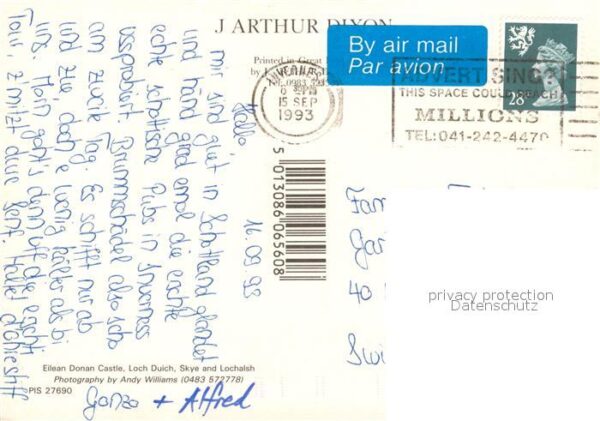 J ARTHUR DIXON
Printed in Great
By air mail
Par avion
INVERNESS
15 SEP
1993
ADVERT SING?
THIS SPACE COULD REACH
MILLIONS
TEL: 041-242-4470
28
5 013086 065608
16.09.93
Hallo
mir sind guet in Schottland glandet
und händ grad emol die erschte
echte schottische Pubs in Inverness
usprobiert. Brummschädel also scho
am zweite Tag. Es schifft nur ab
und zue doch e wenig kälter als bi
uns. Morn goht's denn uf die erscht
Tour, z'mitzt dure
Ganza + Alfred
Fam
40
Swi
privacy protection
Datenschutz
Eilean Donan Castle, Loch Duich, Skye and Lochalsh
Photography by Andy Williams (0483 572778)
PIS 27690